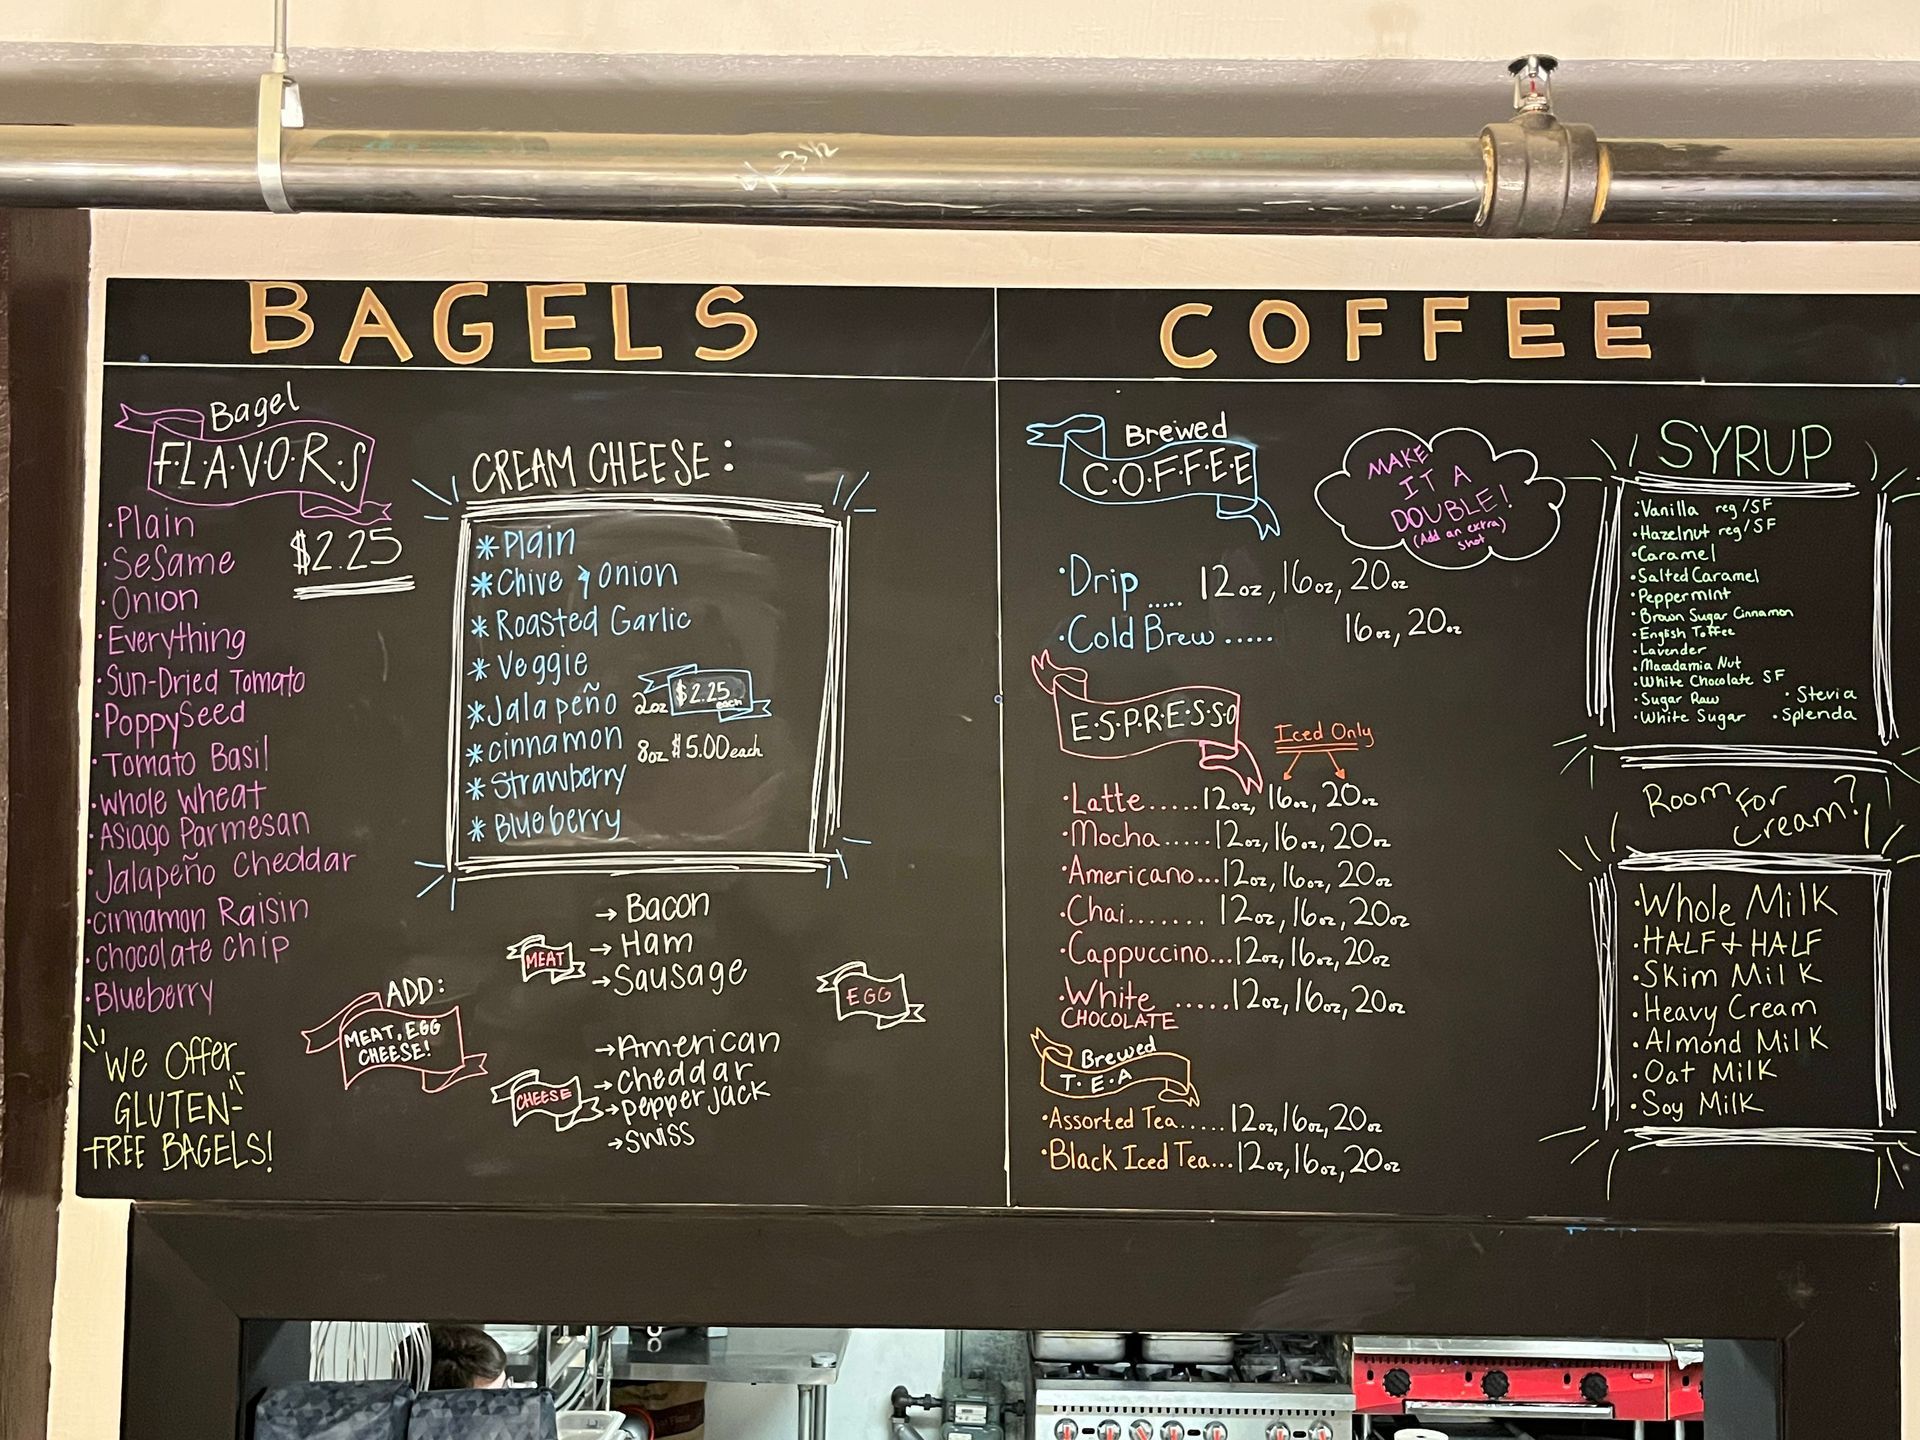 BAGELS
Bagel
F·L·A·V·O·R·S
$2.25
·Plain
·Sesame
·Onion
·Everything
·Sun-Dried Tomato
·PoppySeed
·Tomato Basil
·whole wheat
·Asiago Parmesan
·Jalapeño Cheddar
·cinnamon Raisin
·chocolate chip
·Blueberry
We Offer
GLUTEN-
FREE BAGELS!
CREAM CHEESE:
*Plain
*Chive & Onion
*Roasted Garlic
*Veggie
*Jalapeño
*cinnamon
*Strawberry
*Blueberry
2oz $2.25 each
8oz $5.00 each
ADD:
MEAT, EGG
CHEESE!
MEAT
→Bacon
→Ham
→Sausage
EGG
CHEESE
→American
→cheddar
→pepper jack
→swiss
COFFEE
Brewed
C·O·F·F·E·E
MAKE
IT A
DOUBLE!
(Add an extra)
shot
·Drip ..... 12oz, 16oz, 20oz
·Cold Brew ..... 16oz, 20oz
E·S·P·R·E·S·S·O
Iced Only
·Latte.....12oz, 16oz, 20oz
·Mocha.....12oz, 16oz, 20oz
·Americano...12oz, 16oz, 20oz
·Chai....... 12oz, 16oz, 20oz
·Cappuccino...12oz, 16oz, 20oz
·White .....12oz, 16oz, 20oz
CHOCOLATE
Brewed
T·E·A
·Assorted Tea.....12oz, 16oz, 20oz
·Black Iced Tea...12oz, 16oz, 20oz
SYRUP
·Vanilla reg/SF
·Hazelnut reg/SF
·Caramel
·Salted Caramel
·Peppermint
·Brown Sugar Cinnamon
·English Toffee
·Lavender
·Macadamia Nut
·White Chocolate SF
·Sugar Raw
·Stevia
·White Sugar
·Splenda
Room For
Cream?
·Whole Milk
·HALF + HALF
·Skim Milk
·Heavy Cream
·Almond Milk
·Oat Milk
·Soy Milk